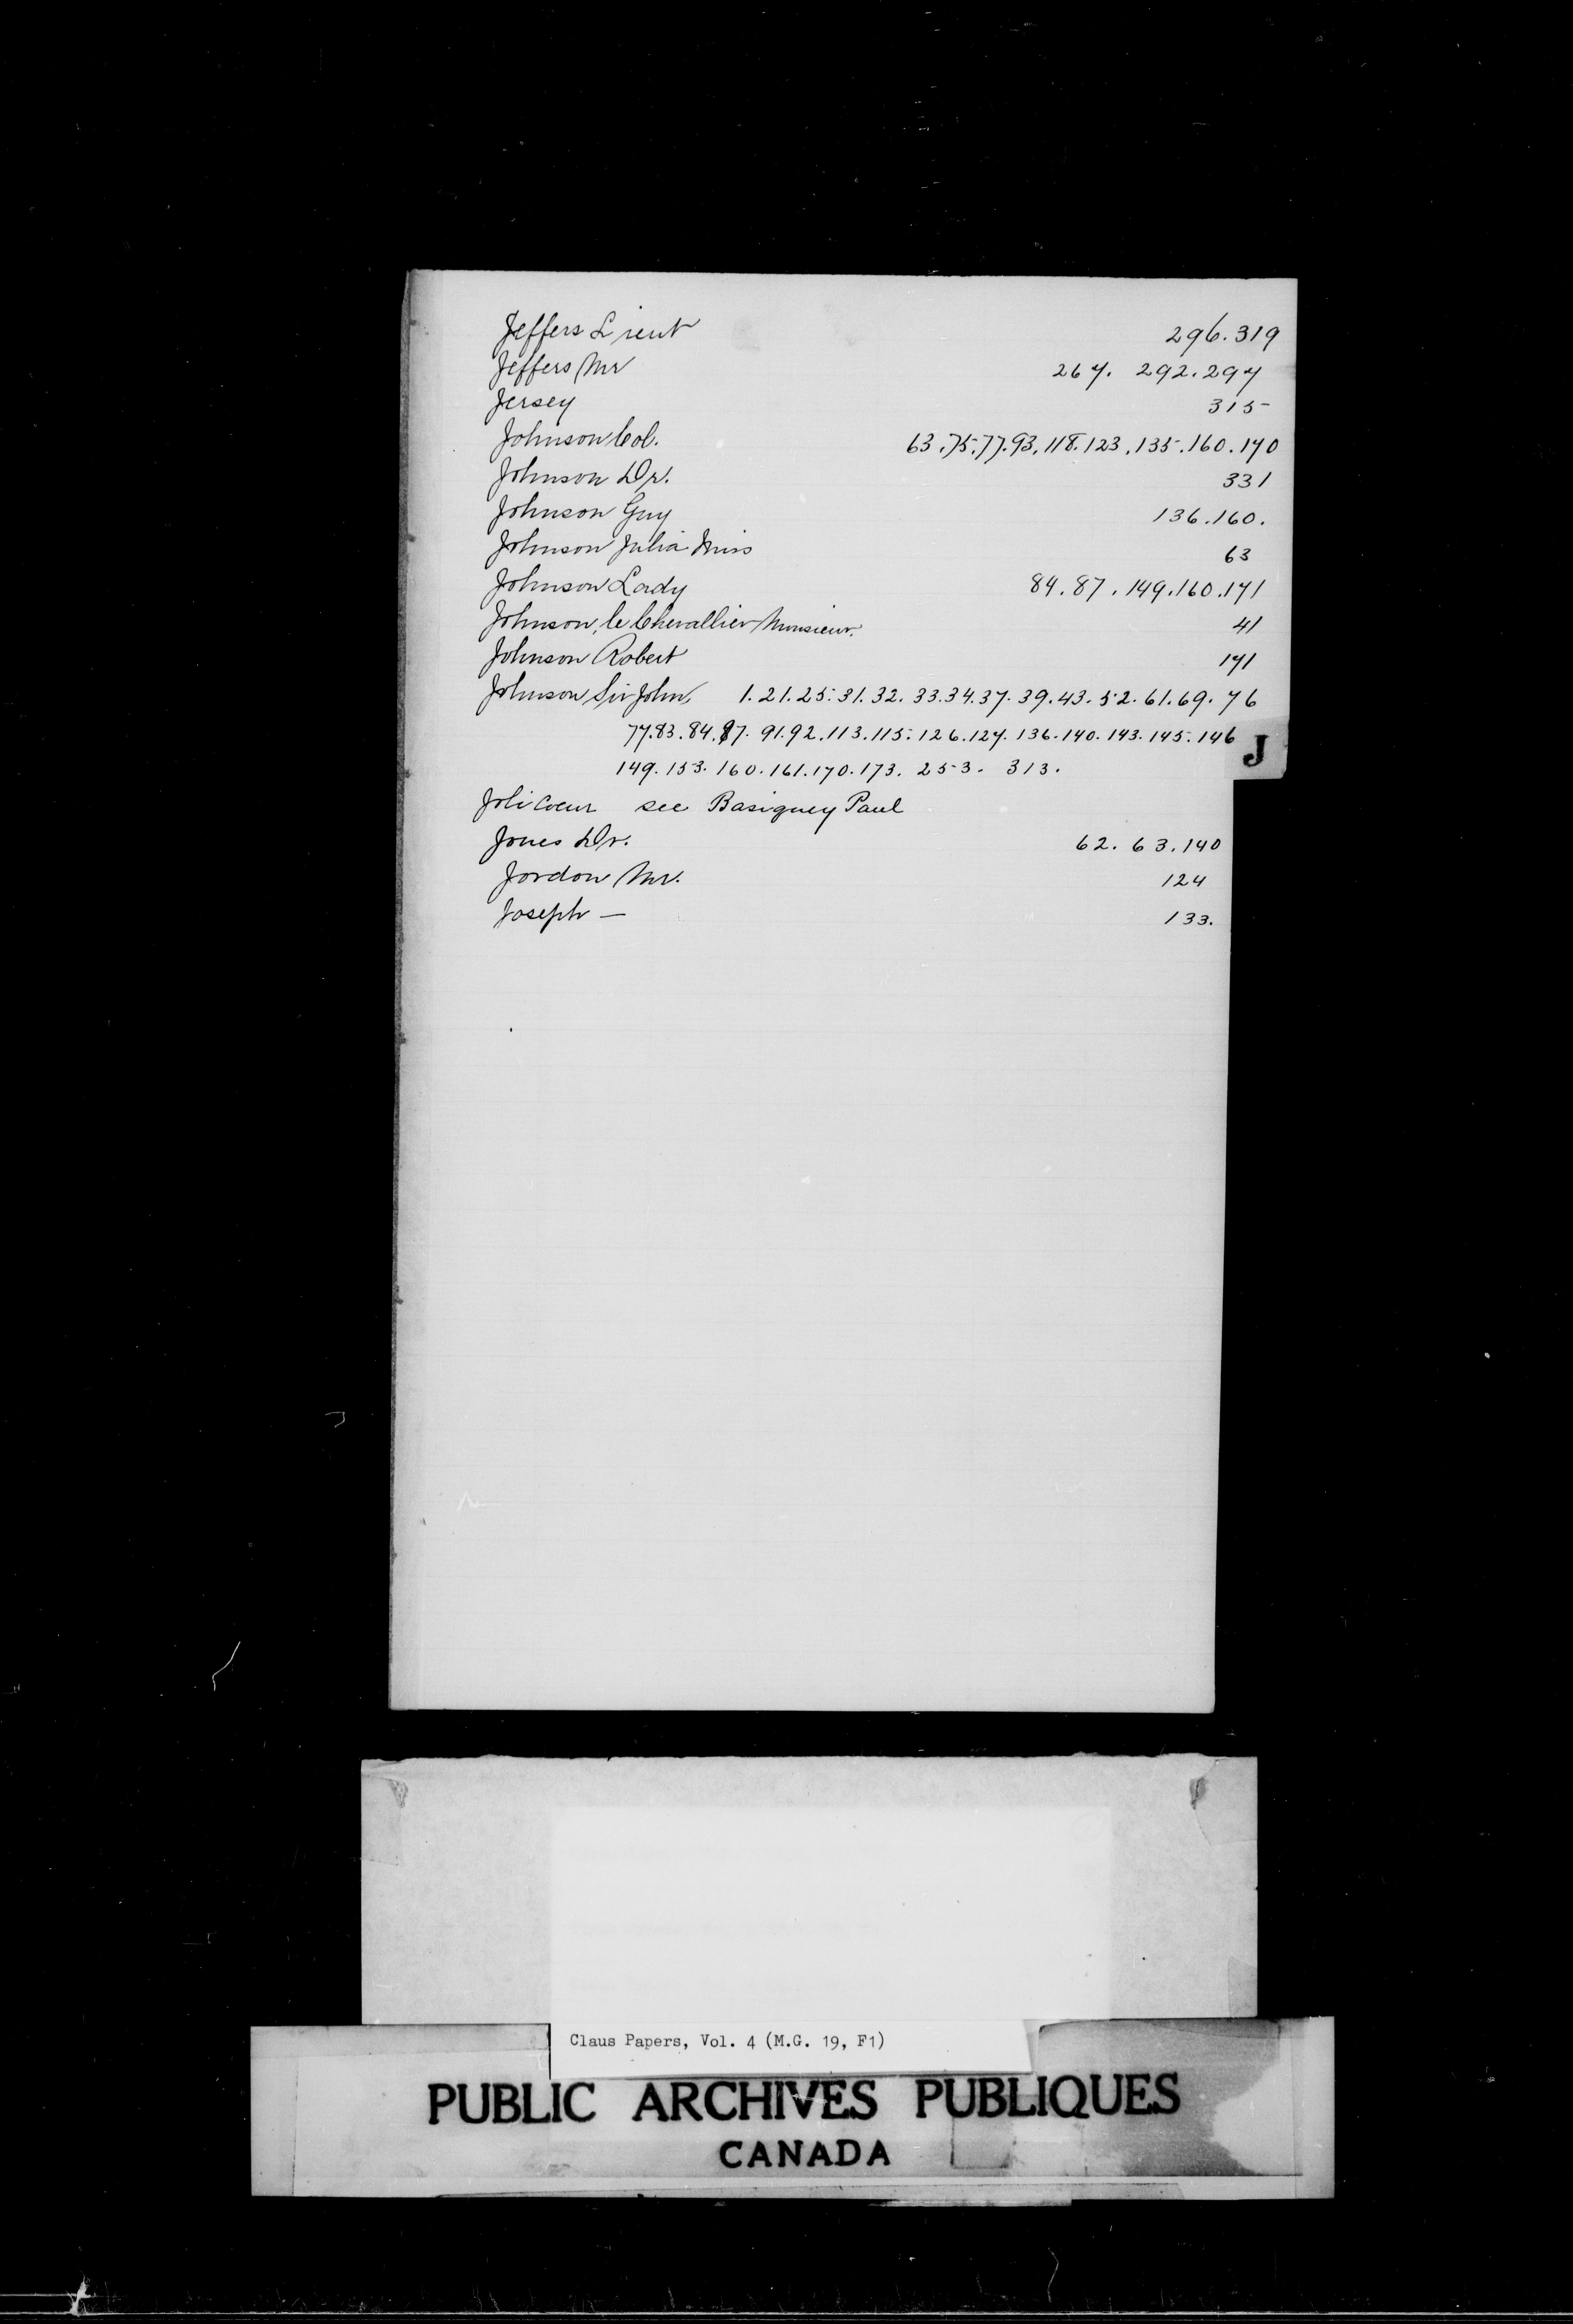 Jeffers Lieut 296.319
Jeffers Mr 267. 292.297
Jersey 315
Johnson Col. 63.75.77.93.118.123.135.160.170
Johnson Dr. 331
Johnson Guy 136.160.
Johnson Julia Miss 63
Johnson Lady 84.87.149.160.171
Johnson, le Chevallier Monsieur. 41
Johnson Robert 171
Johnson Sir John, 1.21.25.31.32.33.34.37.39.43.52.61.69.76
77.83.84.87.91.92.113.115.126.127.136.140.143.145.146
J
149.153.160.161.170.173.253. 313.
Joli Coeur see Basigney Paul
Jones Dr. 62.63.140
Jordon Mr. 124
Joseph — 133.
Claus Papers, Vol. 4 (M.G. 19, F1)
PUBLIC ARCHIVES PUBLIQUES
CANADA